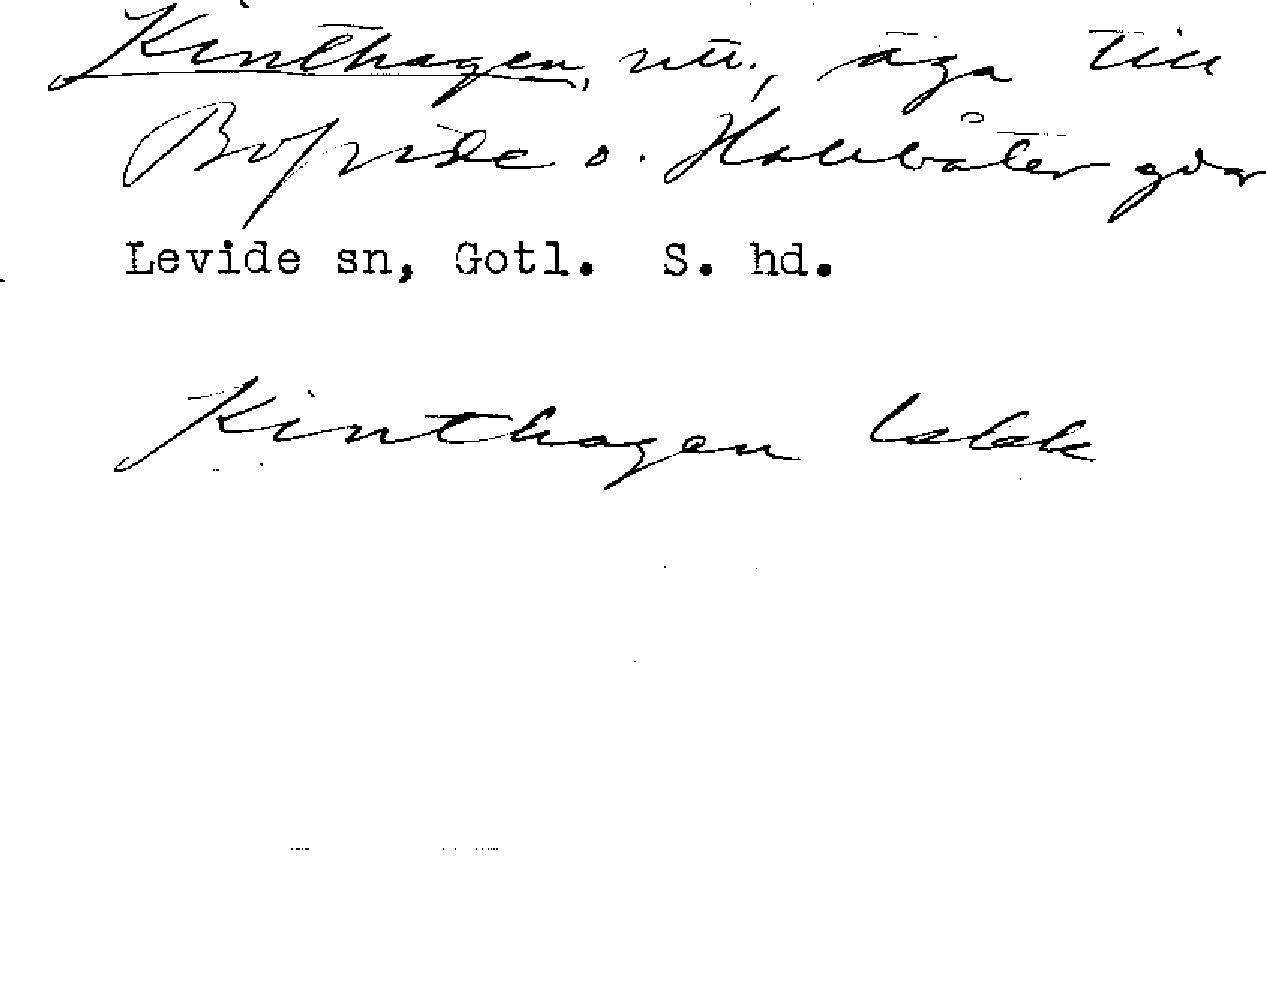 Kinthagen, utt., äga till
Bofride o. Hallvater gdr
Levide sn, Gotl. S. hd.
Kinthagen lskk